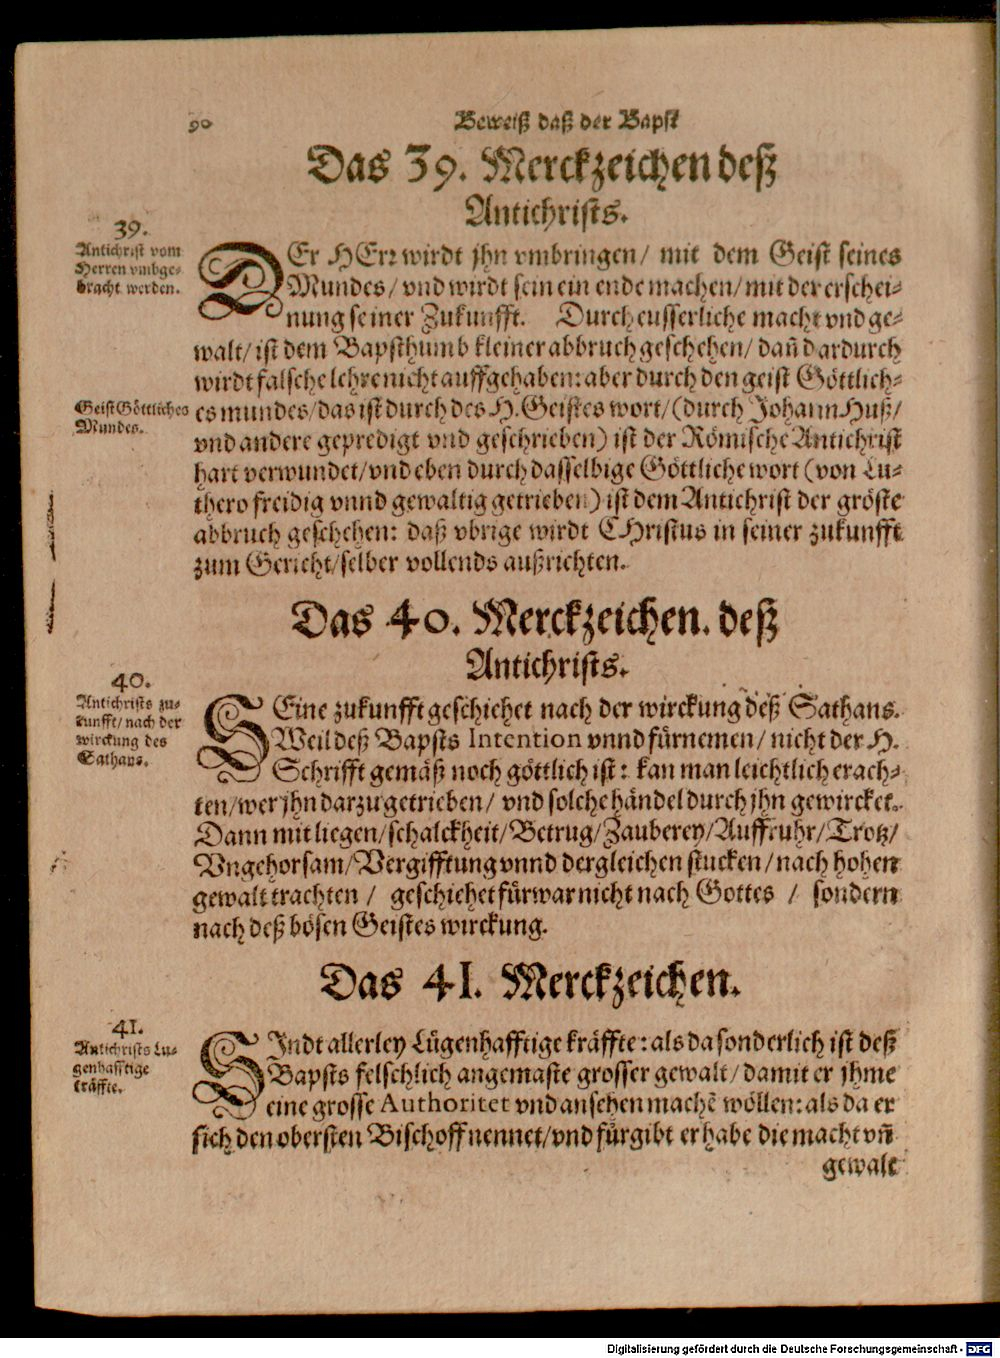 90
Beweiß daß der Bapst
Das 39. Merckzeichen deß
Antichrists.
39.
Antichrist vom
Herren vmbge-
bracht werden.
DEr HErr wirdt jhn vmbringen/ mit dem Geist seines
Mundes/ vnd wirdt sein ein ende machen/ mit der erschei-
nung seiner Zukunfft. Durch eusserliche macht vnd ge-
walt/ ist dem Bapsthumb kleiner abbruch geschehen/ dañ dardurch
wirdt falsche lehre nicht auffgehaben: aber durch den geist Göttlich-
Geist Göttliches
Mundes.
es mundes/ das ist durch des H. Geistes wort/ (durch Johann Huß/
vnd andere gepredigt vnd geschrieben) ist der Römische Antichrist
hart verwundet/ vnd eben durch dasselbige Göttliche wort (von Lu-
thero freidig vnnd gewaltig getrieben) ist dem Antichrist der gröste
abbruch geschehen: daß vbrige wirdt CHristus in seiner zukunfft
zum Gericht/ selber vollends außrichten.
Das 40. Merckzeichen. deß
Antichrists.
40.
Antichrists zu-
kunfft/ nach der
wirckung des
Sathans.
SEine zukunfft geschiehet nach der wirckung deß Sathans.
Weil deß Bapsts Intention vnnd fürnemen/ nicht der H.
Schrifft gemäß noch göttlich ist: kan man leichtlich erach-
ten/ wer jhn darzu getrieben/ vnd solche händel durch jhn gewircket.
Dann mit liegen/ schalckheit/ Betrug/ Zauberey/ Auffruhr/ Trotz/
Vngehorsam/ Vergifftung vnnd dergleichen stucken/ nach hohen
gewalt trachten / geschiehet fürwar nicht nach Gottes / sondern
nach deß bösen Geistes wirckung.
Das 41. Merckzeichen.
41.
Antichrists Lu-
genhafftige
kräffte.
SIndt allerley Lügenhafftige kräffte: als da sonderlich ist deß
Bapsts felschlich angemaste grosser gewalt/ damit er jhme
eine grosse Authoritet vnd ansehen machē wöllen: als da er
sich den obersten Bischoff nennet/ vnd fürgibt er habe die macht vñ
gewalt
Digitalisierung gefördert durch die Deutsche Forschungsgemeinschaft - DFG